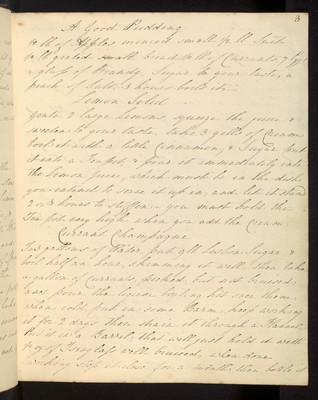 3
A Good Pudding
lb of Apples minced small, lb Suet
lb grated small bread lb of Currants, 7 Eggs
a glass of Brandy, Sugar to your taste, a
pinch of Salt, 3 hours boils it
Lemon Solid
Grate 2 large Lemons, squeeze the juice, &
sweeten to your taste, take 3 gills of Cream
boil it with a little Cinnamon, & Sugar, put
it into a Teapot, & pour it immediately into
the Lemon Juice, which must be in the dish
you intend to serve it up in, and let it stand
2 or 3 hours to stiffen - you must hold the
Tea pot very high when you add the Cream
Currant Champagne
To 3 gallons of Water, put 9 lb Lisbon Sugar &
boil half an hour, skimming it well, then take
a gallon of currants, picked, but not bruised,
pour the liquor boiling hot over them,
when cold, put in some Barm, keep working
it for 2 days then strain it through a
Put it in a Barrel, that will just hold it with
of Isinglass well bruised, when done
working stop it close for a month then bottle it